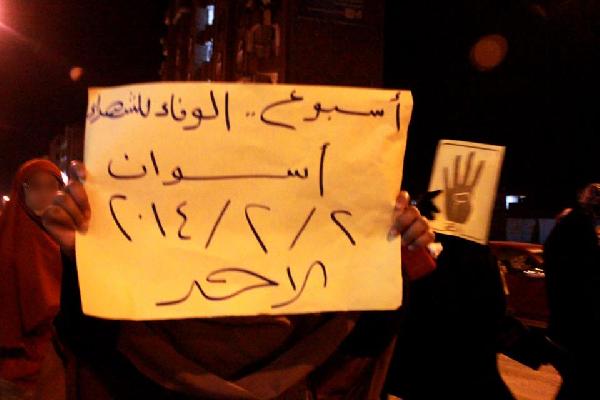 أسبوع .. الوفاء للشهداء
أســـوان
٢ / ٢ / ٢٠١٤
الاحد